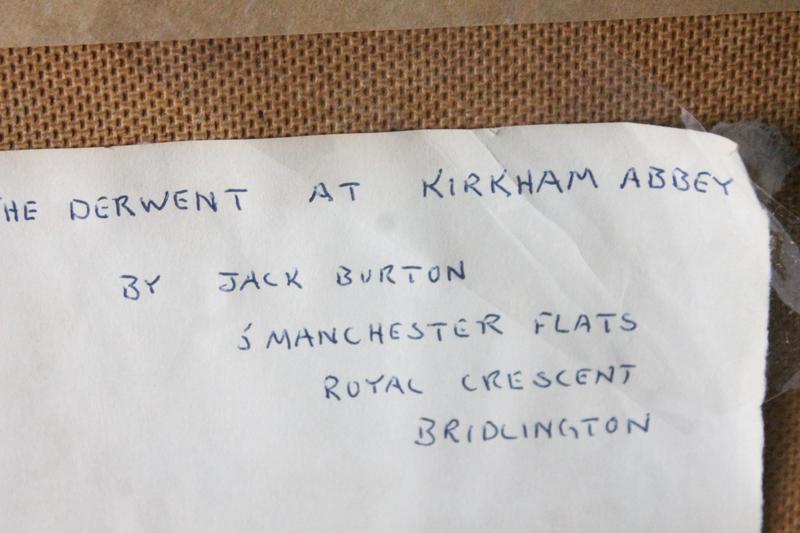 HE DERWENT AT KIRKHAM ABBEY
BY JACK BURTON
5 MANCHESTER FLATS
ROYAL CRESCENT
BRIDLINGTON